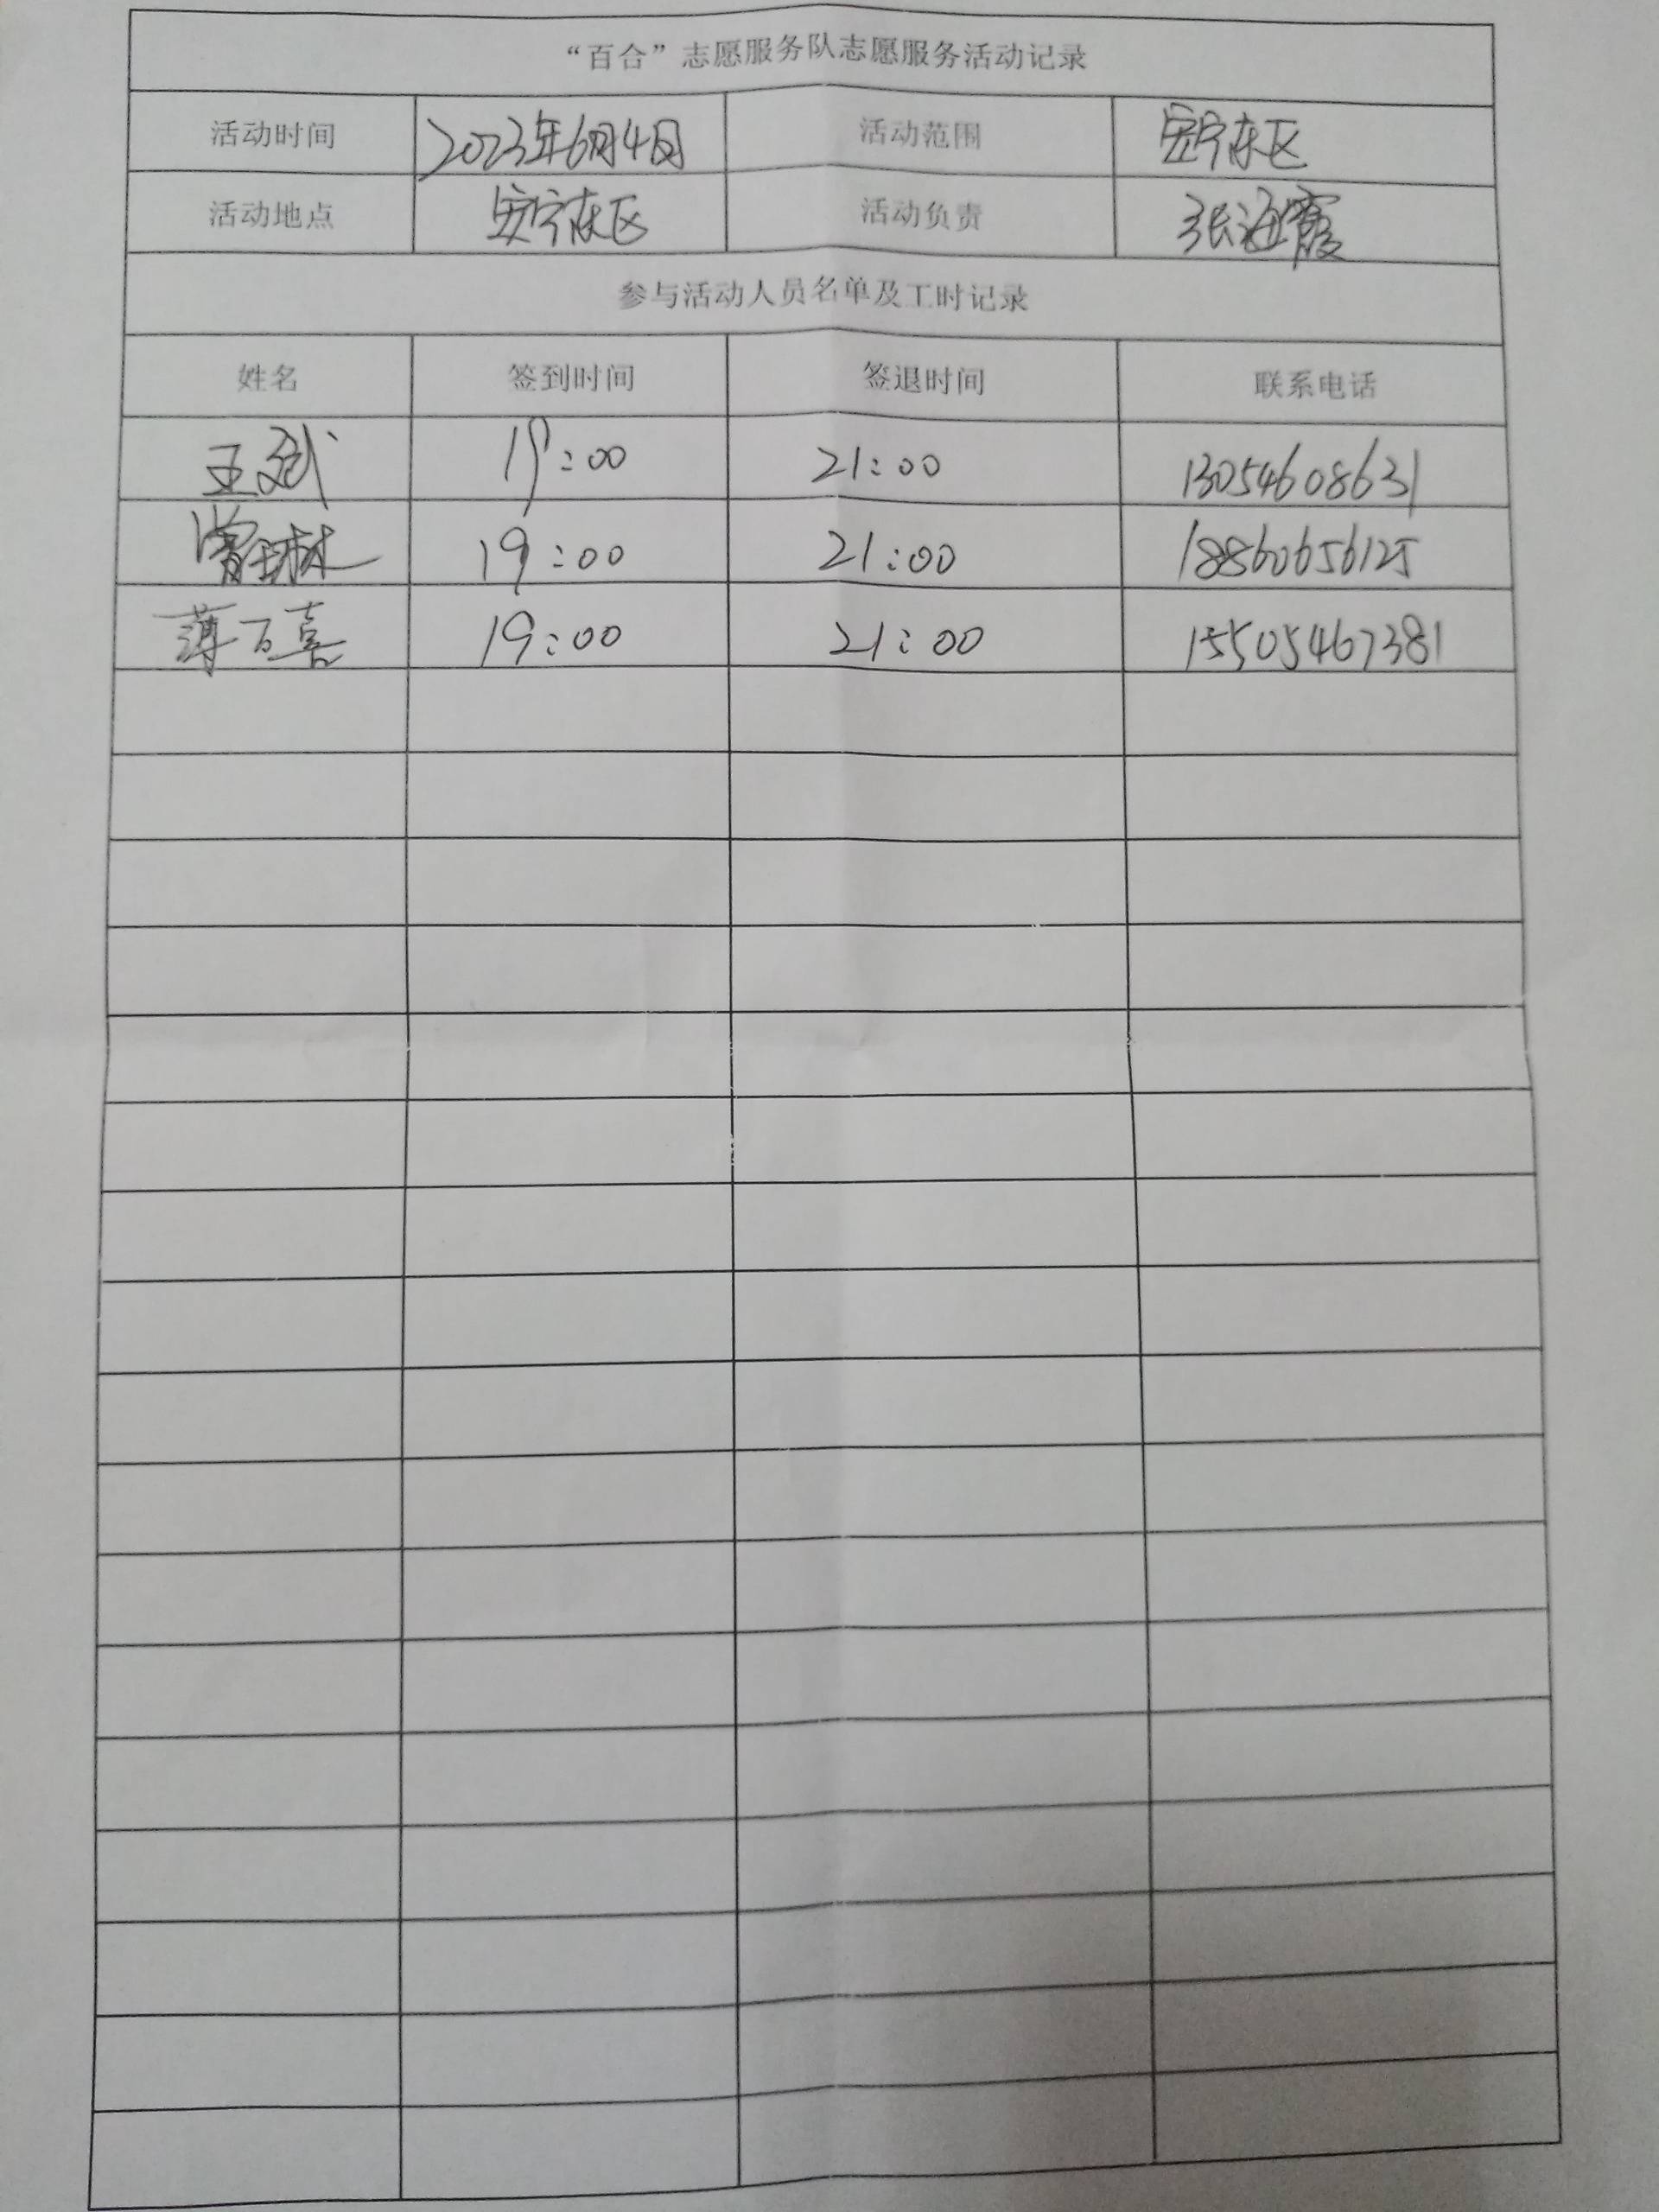 “百合”志愿服务队志愿服务活动记录
活动时间 2023年6月4日 活动范围 安宁东区
活动地点 安宁东区 活动负责 张海霞
参与活动人员名单及工时记录
姓名 签到时间 签退时间 联系电话
王斌 19:00 21:00 13054608631
曾玉林 19:00 21:00 18860656125
薄万喜 19:00 21:00 15505467381